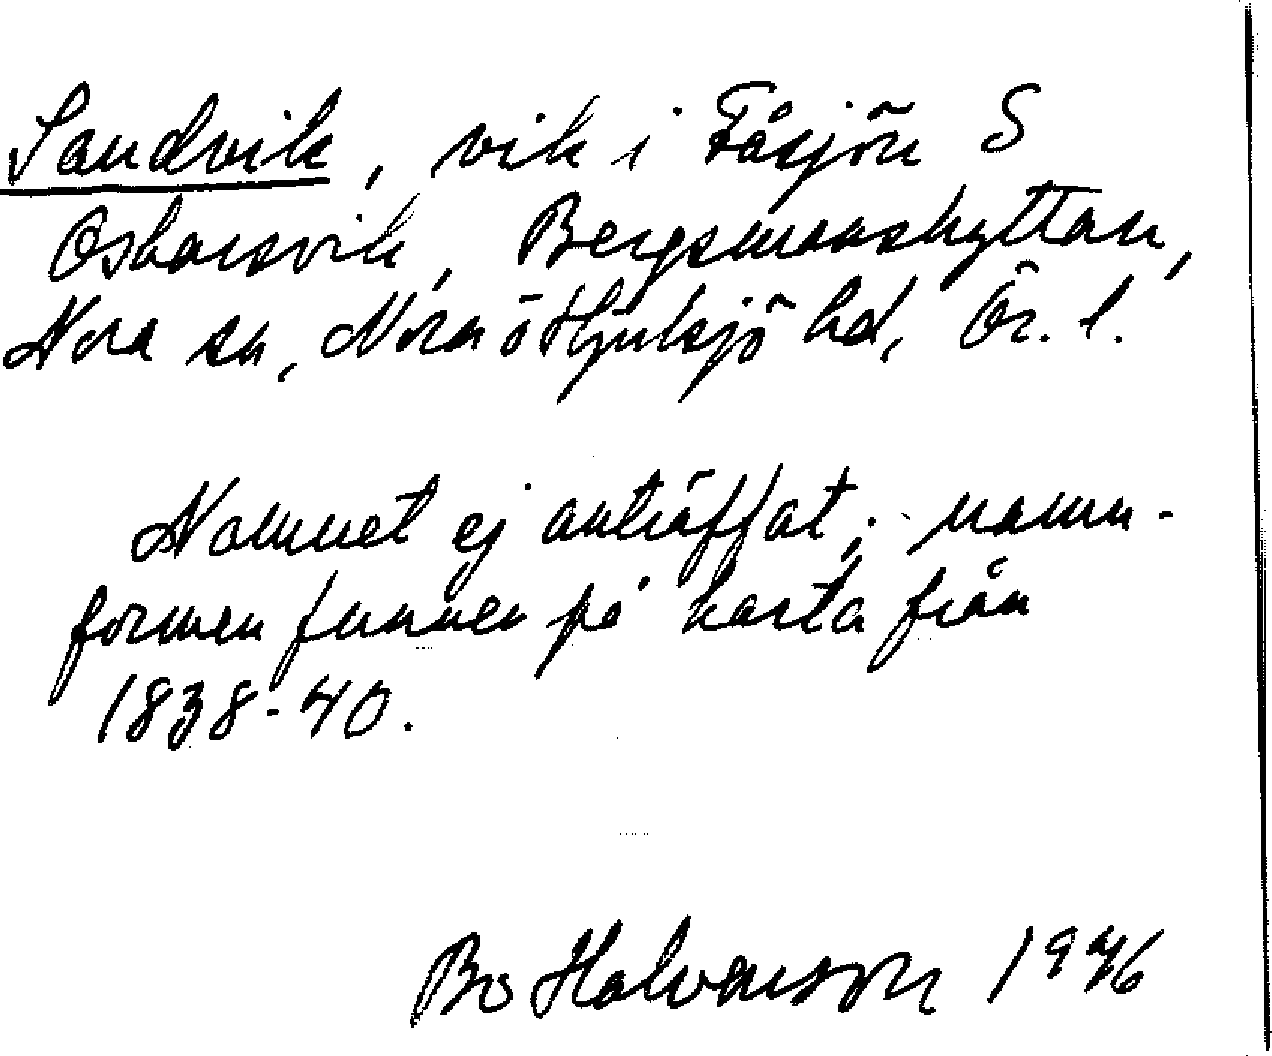 Sandvik, vik i Fåsjön S
Oskarsvik, Bergsmanshyttan,
Nora sn, Nora ö Hjulsjö hd, Ör. l.
Namnet ej anträffat; namn-
formen funnen på karta från
1838-40.
Bo Halvarson 1946